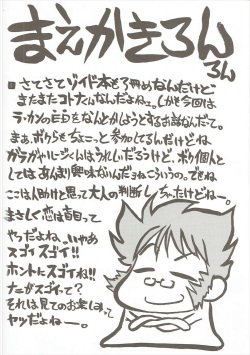 まえがきろん
ろん
■さてさてゾイド本も7冊めなんだけど
またまたコトナさんなんだよねェ。しかも今回は
ラ・カンのEDをなんとかしようとするお話なんだって。
まぁ、ボクらもちょこっと参加してるんだけどね、
ガラガやルージくんはうれしいだろうけど、ボク個人と
してはあんまり興味ないんだよねこういうの。でもね
ここは人助けと思って大人の判断しちゃったけどねー。
まさしく恋は盲目って
ヤツだよね、いやぁ
スゴイスゴイ!!
ホントにスゴイね!!
ナニがスゴイって?
それは見てのお楽しみって
ヤツだよねー。